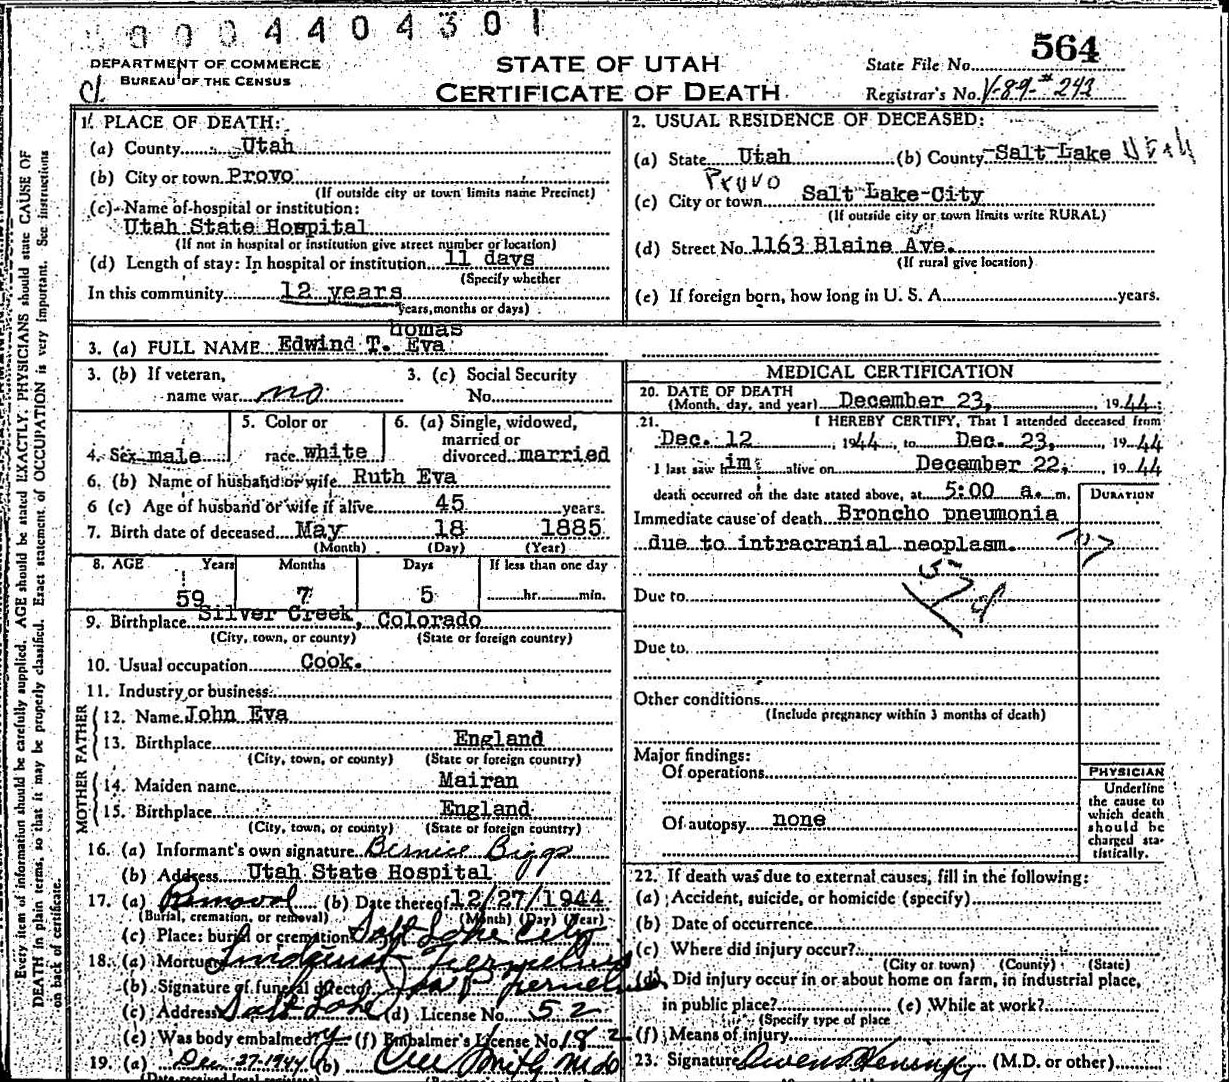 0004404301
564
DEPARTMENT OF COMMERCE
BUREAU OF THE CENSUS
STATE OF UTAH
CERTIFICATE OF DEATH
State File No.
Registrar's No. V-89-#243
1. PLACE OF DEATH:
(a) County Utah
(b) City or town Provo
(If outside city or town limits name Precinct)
(c) Name of hospital or institution:
Utah State Hospital
(If not in hospital or institution give street number or location)
(d) Length of stay: In hospital or institution 11 days
(Specify whether
In this community 12 years
years, months or days)
2. USUAL RESIDENCE OF DECEASED:
(a) State Utah (b) County Salt Lake Utah
Provo
(c) City or town Salt Lake City
(If outside city or town limits write RURAL)
(d) Street No. 1163 Blaine Ave.
(If rural give location)
(e) If foreign born, how long in U. S. A. years.
homas
3. (a) FULL NAME Edwind T. Eva
3. (b) If veteran,
name war no
3. (c) Social Security
No.
4. Sex male
5. Color or
race white
6. (a) Single, widowed,
married or
divorced married
6. (b) Name of husband or wife Ruth Eva
6 (c) Age of husband or wife if alive 45 years.
7. Birth date of deceased May 18 1885
(Month) (Day) (Year)
8. AGE Years Months Days If less than one day
59 7 5 hr. min.
9. Birthplace Silver Creek, Colorado
(City, town, or county) (State or foreign country)
10. Usual occupation Cook.
11. Industry or business
FATHER
12. Name John Eva
13. Birthplace England
(City, town, or county) (State or foreign country)
MOTHER
14. Maiden name Mairan
15. Birthplace England
(City, town, or county) (State or foreign country)
16. (a) Informant's own signature Bernice Biggs
(b) Address Utah State Hospital
17. (a) Removal (b) Date thereof 12/27/1944
(Burial, cremation, or removal) (Month) (Day) (Year)
(c) Place: burial or cremation Salt Lake City
18. (a) Mortuary
(b) Signature of funeral director
(c) Address Salt Lake (d) License No. 52
(e) Was body embalmed? y (f) Embalmer's License No. 182
19. (a) Dec 27-1944 (b) Smith
(Date received local registrar)
MEDICAL CERTIFICATION
20. DATE OF DEATH
(Month, day, and year) December 23, 1944
21. I HEREBY CERTIFY, That I attended deceased from
Dec. 12 1944 to Dec. 23, 1944
I last saw him alive on December 22, 1944
death occurred on the date stated above, at 5:00 a. m.
DURATION
Immediate cause of death Broncho pneumonia
due to intracranial neoplasm.
57d
Due to
Due to
Other conditions
(Include pregnancy within 3 months of death)
Major findings:
Of operations
Of autopsy none
PHYSICIAN
Underline
the cause to
which death
should be
charged sta-
tistically.
22. If death was due to external causes, fill in the following:
(a) Accident, suicide, or homicide (specify)
(b) Date of occurrence
(c) Where did injury occur?
(City or town) (County) (State)
(d) Did injury occur in or about home on farm, in industrial place,
in public place? (e) While at work?
(Specify type of place
(f) Means of injury
23. Signature (M.D. or other)
Every item of information should be carefully supplied. AGE should be stated EXACTLY. PHYSICIANS should state CAUSE OF
DEATH in plain terms, so that it may be properly classified. Exact statement of OCCUPATION is very important. See instructions
on back of certificate.